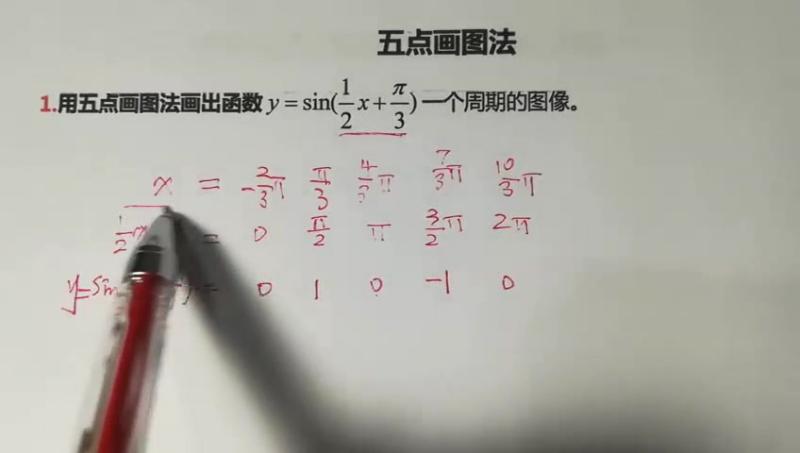 五点画图法
1.用五点画图法画出函数 y = sin(\frac{1}{2}x + \frac{π}{3}) 一个周期的图像。
x = -\frac{2}{3}π \frac{π}{3} \frac{4}{3}π \frac{7}{3}π \frac{10}{3}π
\frac{1}{2}x = 0 \frac{π}{2} π \frac{3}{2}π 2π
y=sin = 0 1 0 -1 0